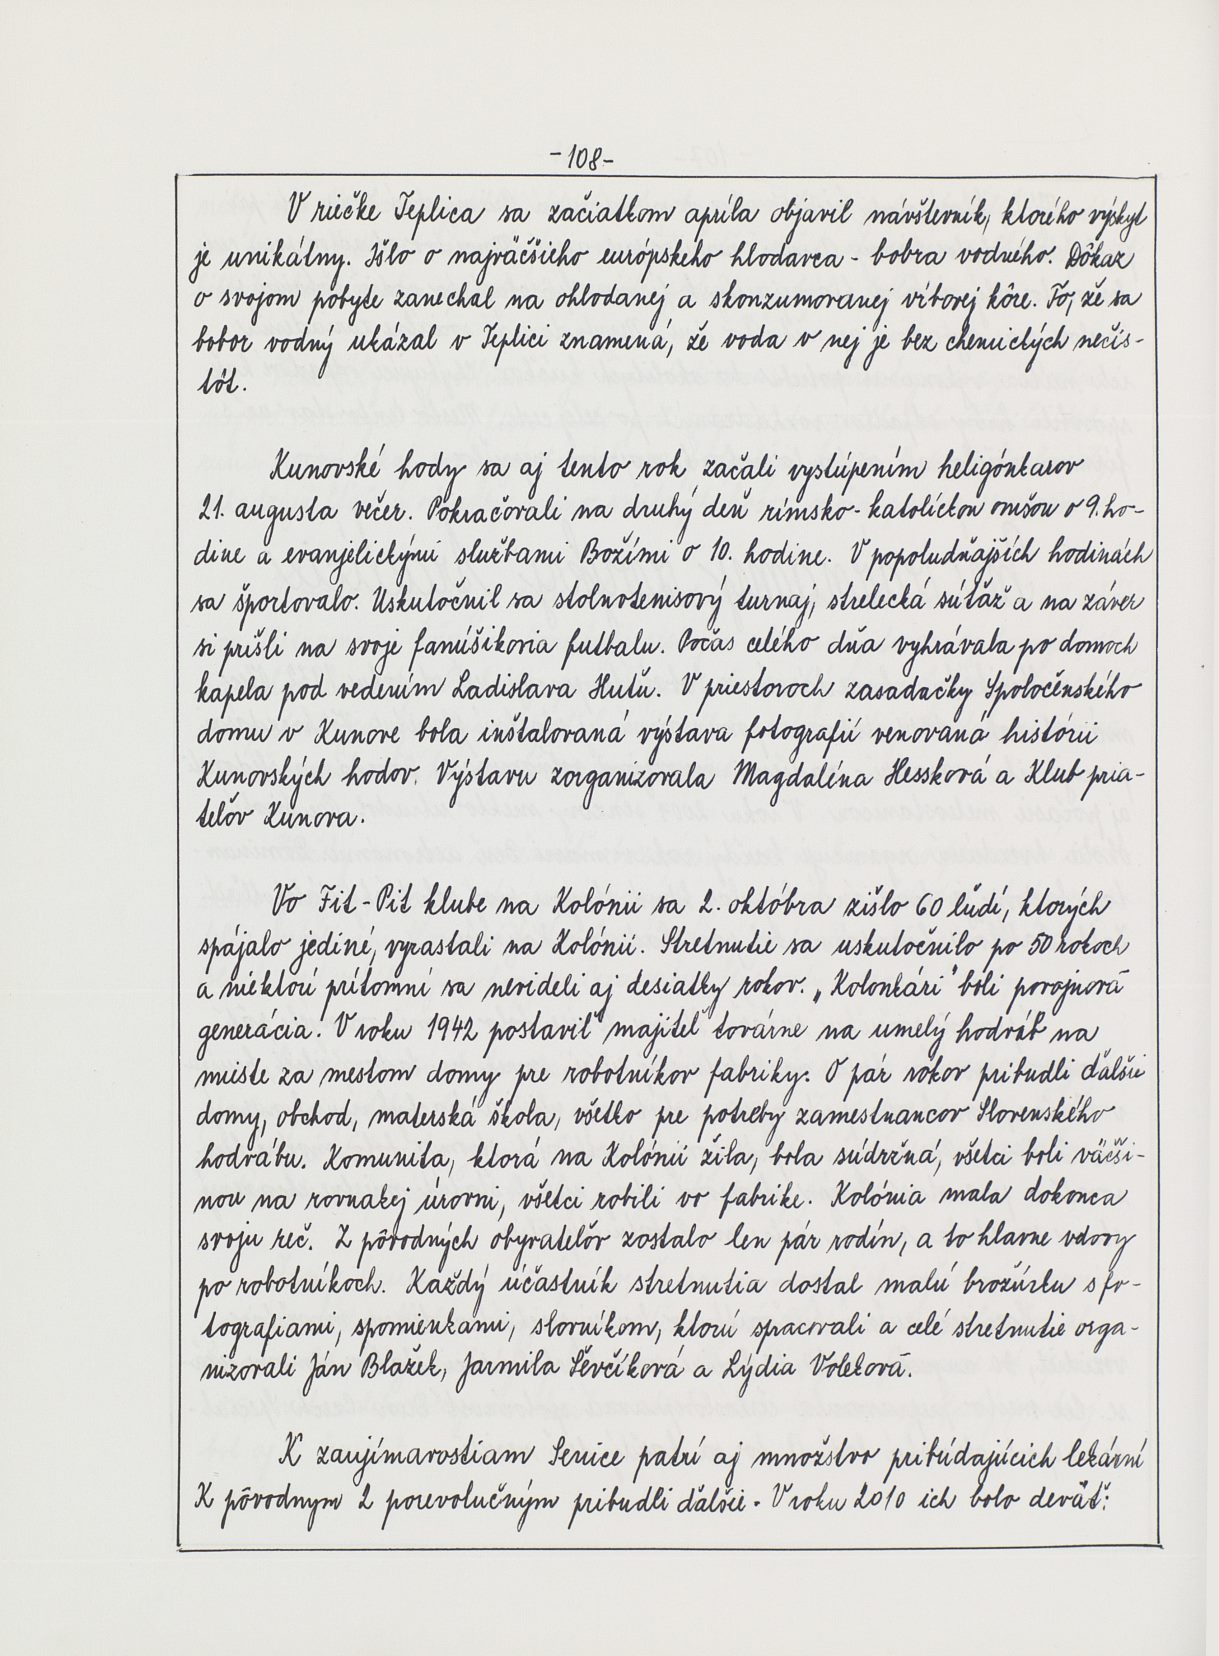 -108-
V riečke Teplica sa začiatkom apríla objavil návštevník, ktorého výskyt
je unikálny. Išlo o najväčšieho európskeho hlodavca - bobra vodného. Dôkaz
o svojom pobyte zanechal na ohlodanej a skonzumovanej vŕbovej kôre. To, že sa
bobor vodný ukázal v Teplici znamená, že voda v nej je bez chemických nečis-
tôt.
Kunovské hody sa aj tento rok začali vystúpením heligónkarov
21. augusta večer. Pokračovali na druhý deň rímsko-katolíckou omšou o 9. ho-
dine a evanjelickými službami Božími o 10. hodine. V popoludňajších hodinách
sa športovalo. Uskutočnil sa stolnotenisový turnaj, strelecká súťaž a na záver
si prišli na svoje fanúšikovia futbalu. Počas celého dňa vyhrávala po domoch
kapela pod vedením Ladislava Hutu. V priestoroch zasadačky Spoločenského
domu v Kunove bola inštalovaná výstava fotografií venovaná histórii
Kunovských hodov. Výstavu zorganizovala Magdaléna Hessková a Klub pria-
teľov Kunova.
Vo Fit-Pit klube na Kolónii sa 2. októbra zišlo 60 ľudí, ktorých
spájalo jediné, vyrastali na Kolónii. Stretnutie sa uskutočnilo po 50 rokoch
a niektorí prítomní sa nevideli aj desiatky rokov. „Kolonkári" boli povojnová
generácia. V roku 1942 postavil majiteľ továrne na umelý hodváb na
mieste za mestom domy pre robotníkov fabriky. O pár rokov pribudli ďalšie
domy, obchod, materská škola, všetko pre potreby zamestnancov Slovenského
hodvábu. Komunita, ktorá na Kolónii žila, bola súdržná, všetci boli väčši-
nou na rovnakej úrovni, všetci robili vo fabrike. Kolónia mala dokonca
svoju reč. Z pôvodných obyvateľov zostalo len pár rodín, a to hlavne vdovy
po robotníkoch. Každý účastník stretnutia dostal malú brožúrku s fo-
tografiami, spomienkami, slovníkom, ktorú spracovali a celé stretnutie orga-
nizovali Ján Blažek, Jarmila Ševčíková a Lýdia Voleková.
K zaujímavostiam Senice patrí aj množstvo pribúdajúcich lekární
K pôvodnym 2 porevolučným pribudli ďalšie. V roku 2010 ich bolo deväť: